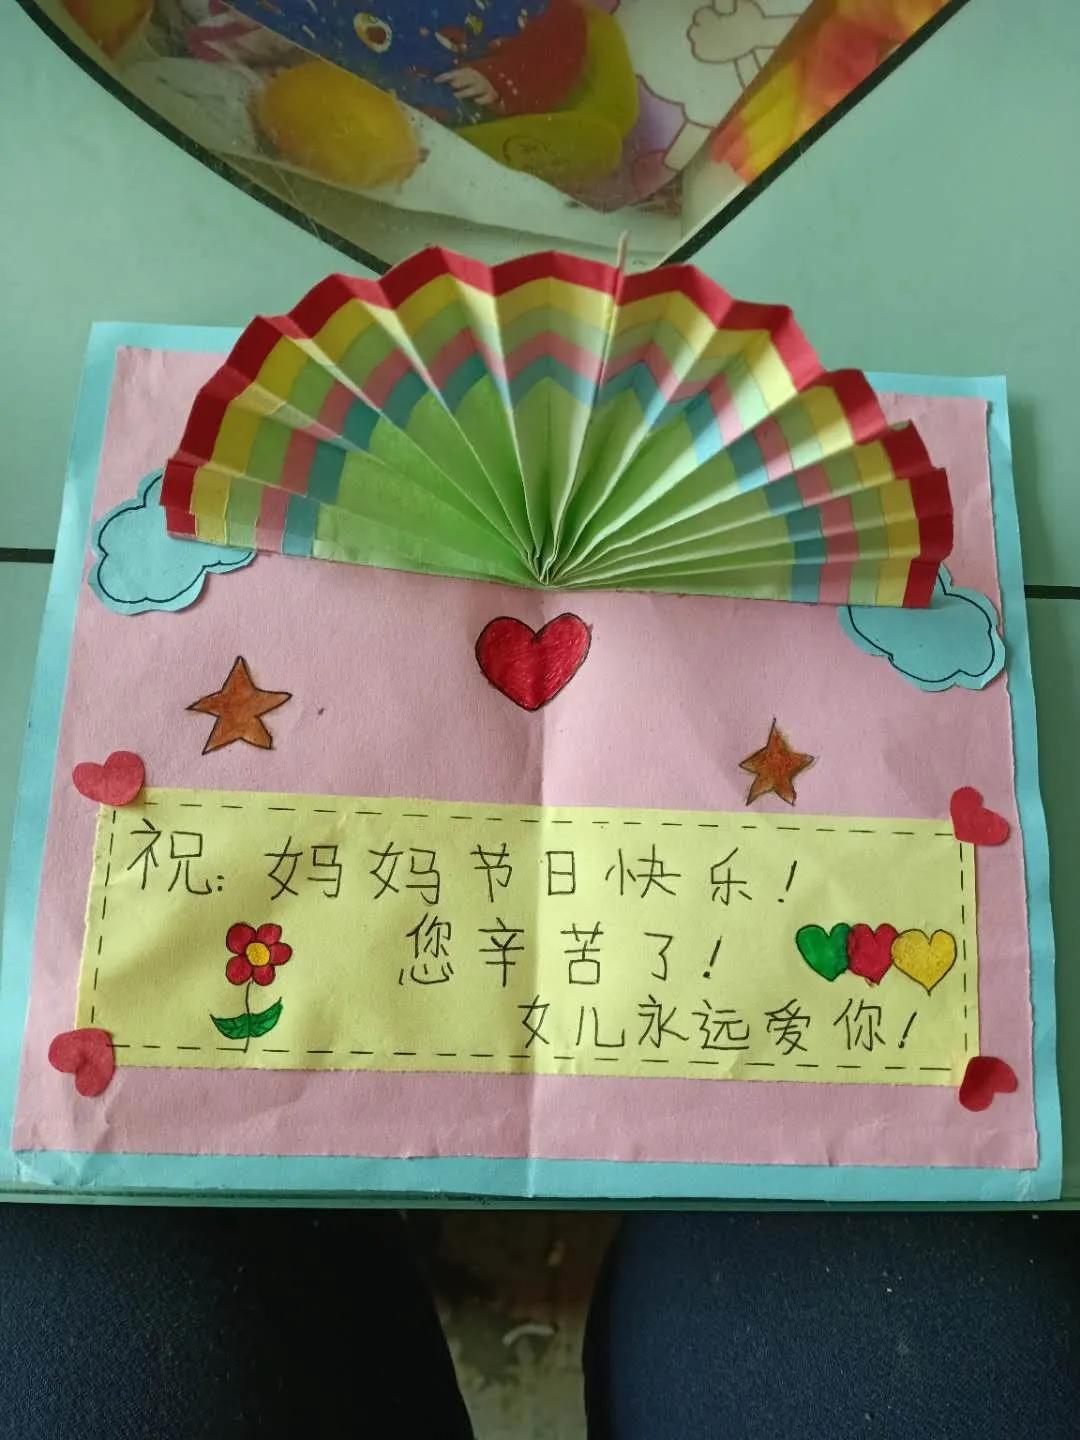 祝:妈妈节日快乐!
您辛苦了!
女儿永远爱你!